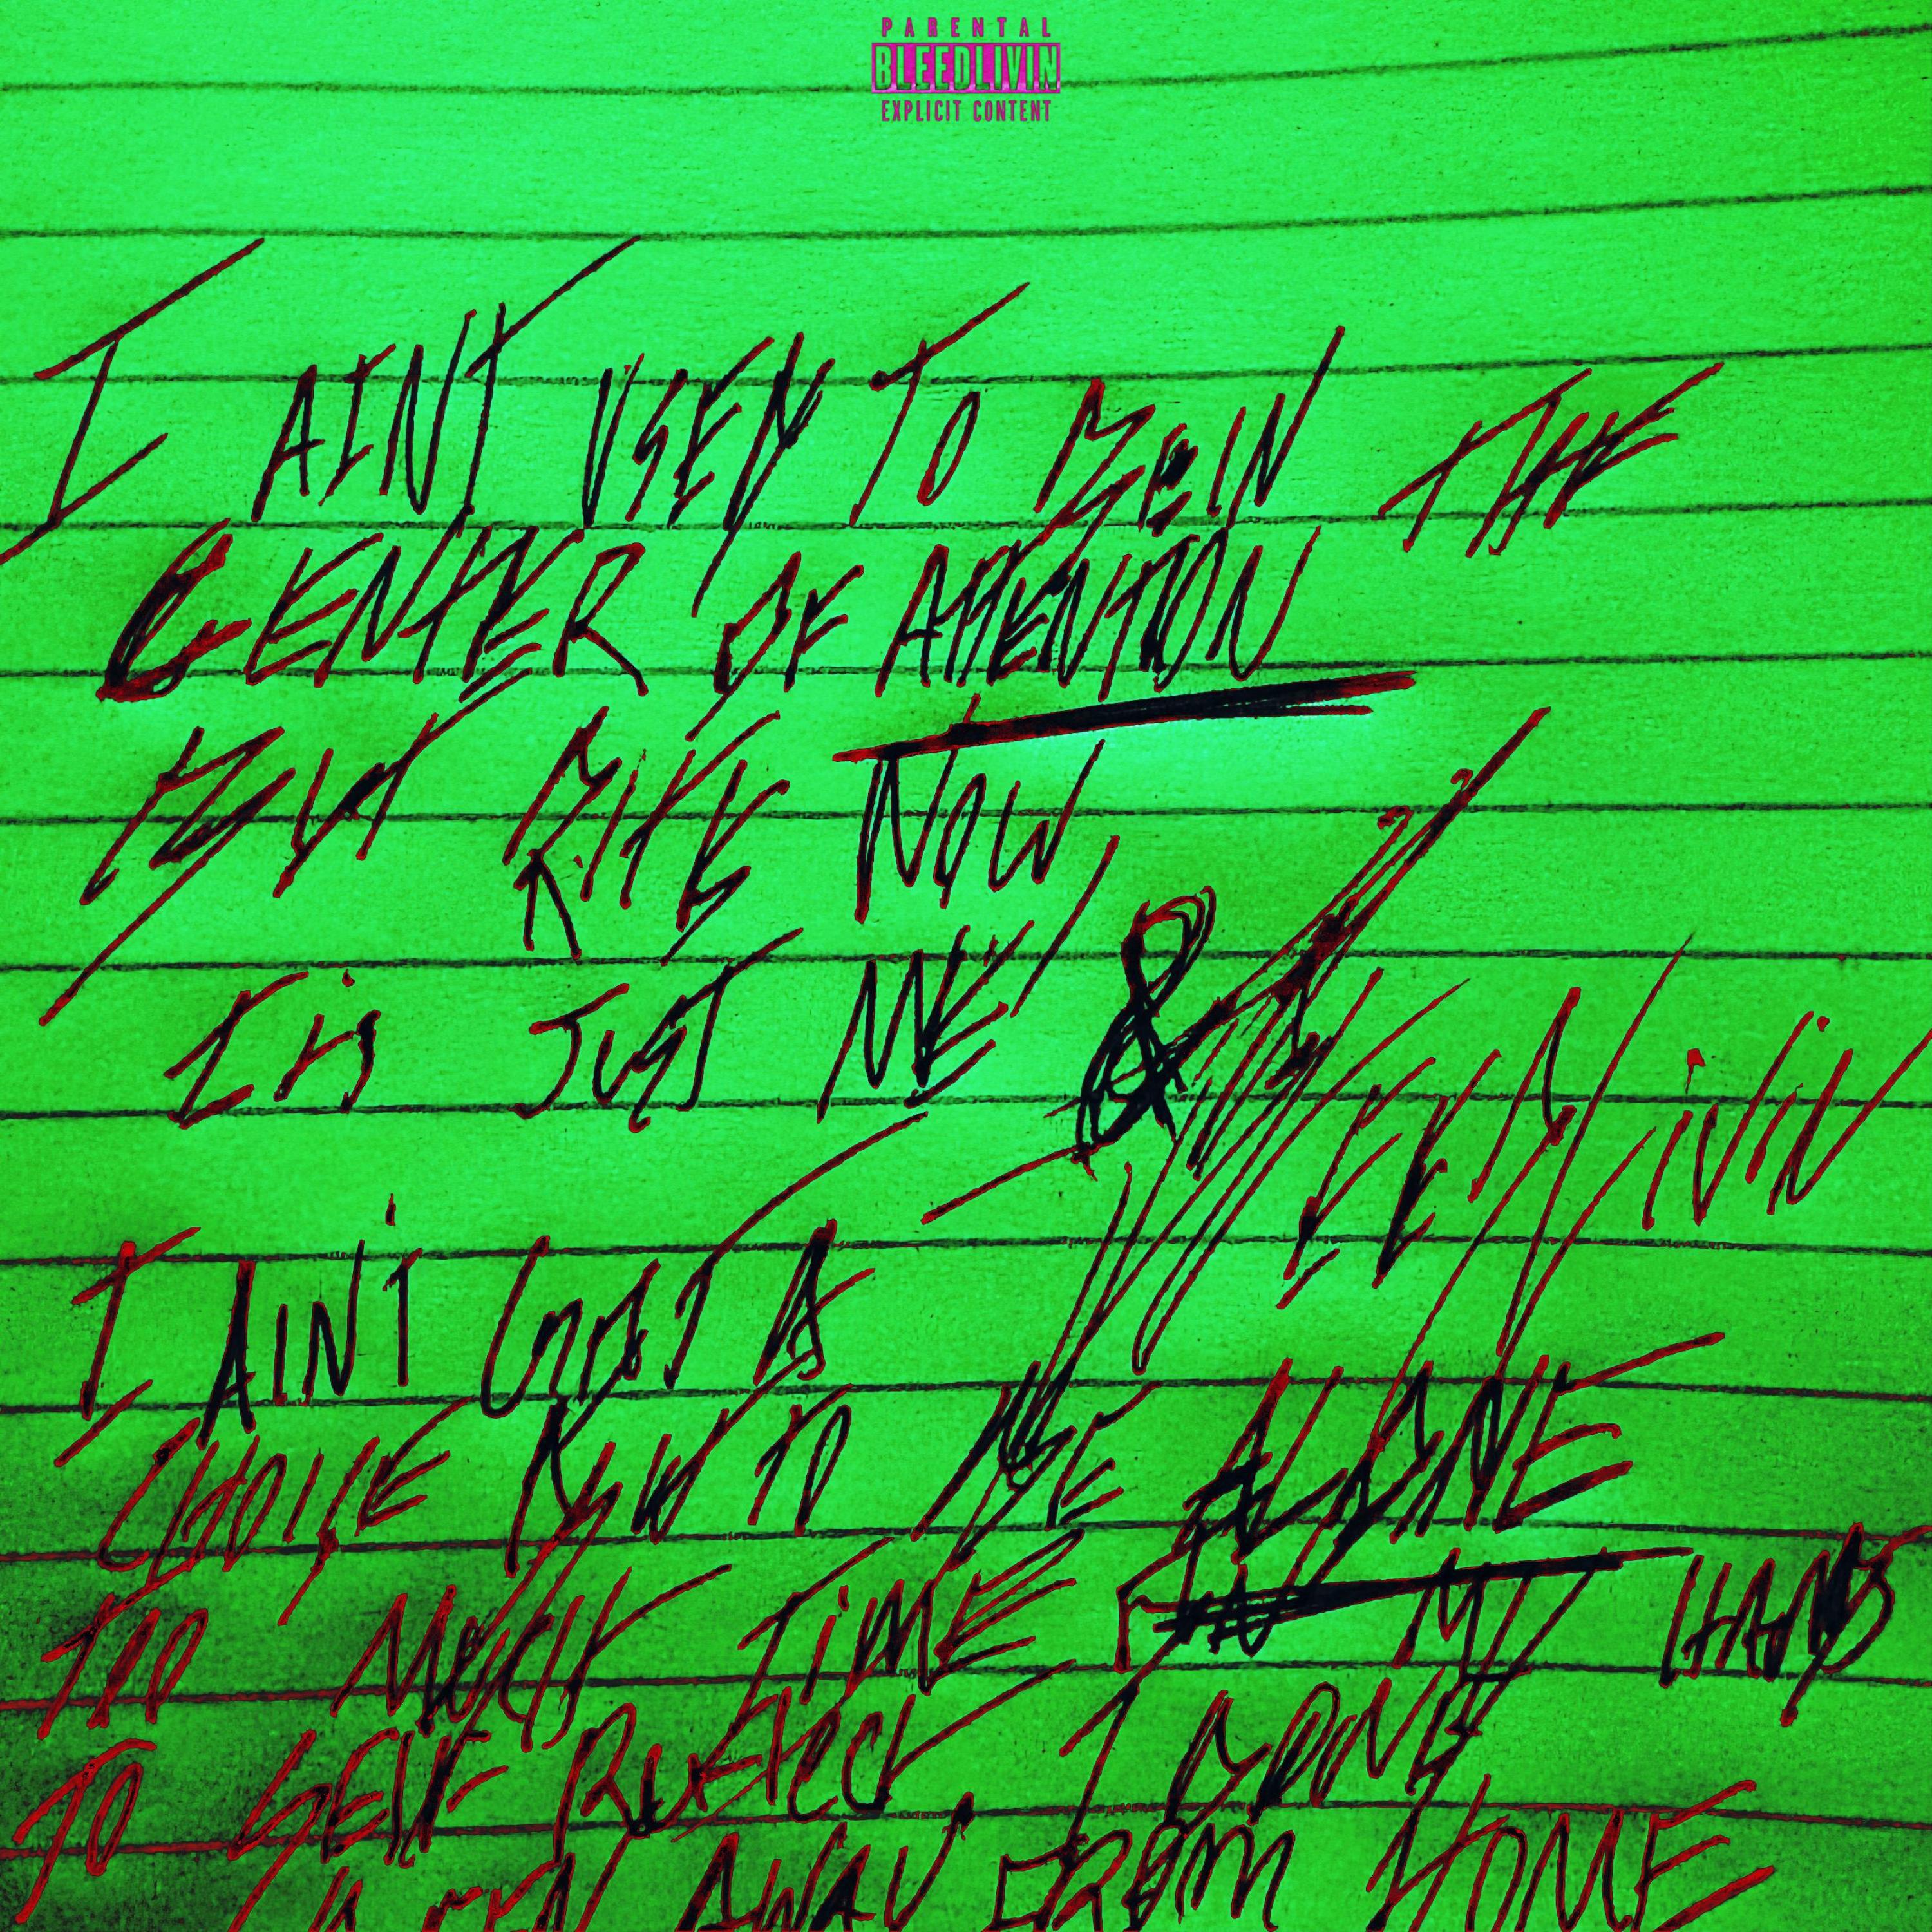 PARENTAL
BLEEDLIVIN
EXPLICIT CONTENT
I AINT USED TO BEIN THE
CENTER OF ATTENTION
BUT RITE NOW,
IT'S JUST ME &
I AIN'T GOT A
CHOICE BUT TO BE ALONE
TOO MUCH TIME MY HAND
TO SELF REFLECT, I DONT
AWAY FROM HOME